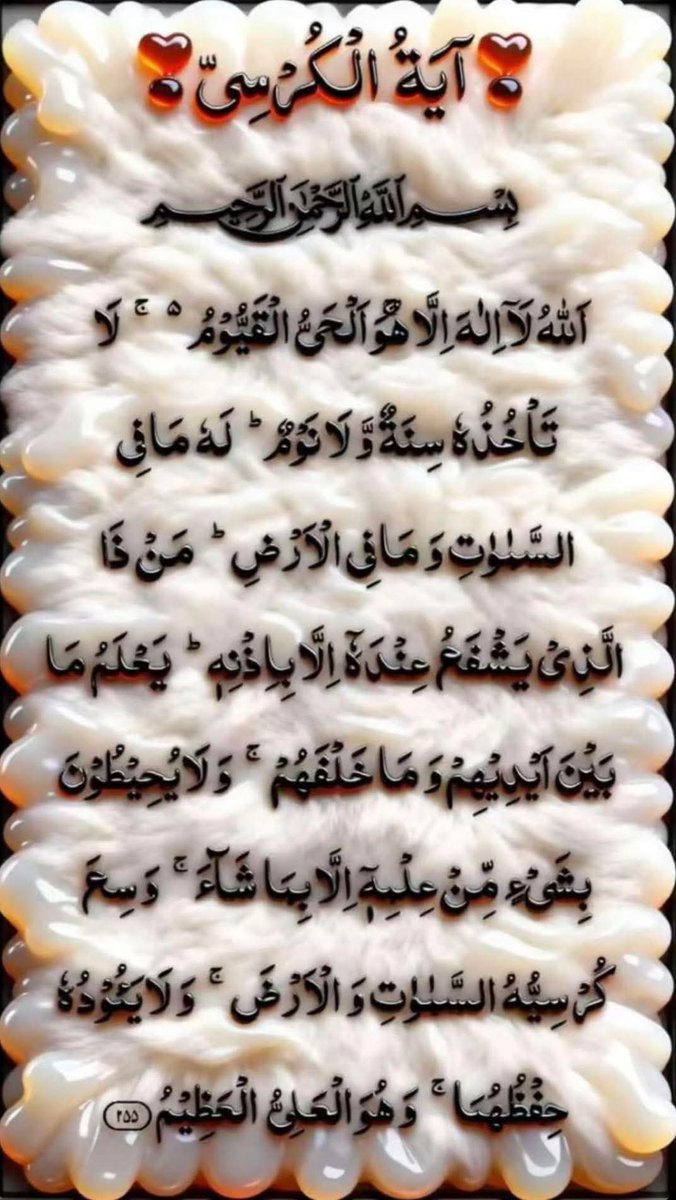 آيَةُ الْكُرْسِيّ
بِسْمِ اللَّهِ الرَّحْمَٰنِ الرَّحِيمِ
اَللهُ لَآ اِلٰهَ اِلَّا هُوَ اَلْحَىُّ الْقَيُّوْمُ ۵ ۚ لَا
تَاْخُذُهٗ سِنَةٌ وَّلَا نَوْمٌ ؕ لَهٗ مَا فِى
السَّمٰوٰتِ وَمَا فِى الْاَرْضِ ؕ مَنْ ذَا
الَّذِىْ يَشْفَعُ عِنْدَهٗۤ اِلَّا بِاِذْنِهٖ ؕ يَعْلَمُ مَا
بَيْنَ اَيْدِيْهِمْ وَمَا خَلْفَهُمْ ۚ وَلَا يُحِيْطُوْنَ
بِشَىْءٍ مِّنْ عِلْمِهٖۤ اِلَّا بِمَا شَآءَ ۚ وَسِعَ
كُرْسِيُّهُ السَّمٰوٰتِ وَالْاَرْضَ ۚ وَلَا يَـُٔوْدُهٗ
حِفْظُهُمَا ۚ وَهُوَ الْعَلِىُّ الْعَظِيْمُ ۲۵۵